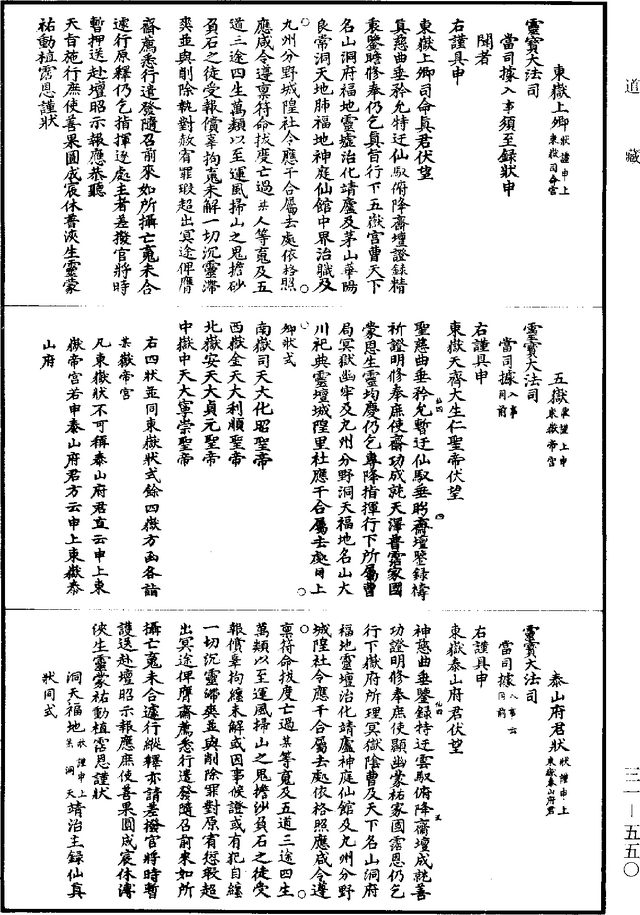 道藏
東嶽上卿狀謹申上東嶽司命宮
靈寶大法司
當司據入事須至錄狀申
聞者
右謹具申
東嶽上卿司命眞君伏望
眞慈曲垂矜允特迂仙馭俯降齋壇證錄精
衷鑒瞻修奉仍乞眞旨行下五嶽宮曹天下
名山洞府福地靈墟治化靖廬及茅山華陽
良常洞天地肺福地神庭仙館中界治職及
九州分野城隍社令應干合屬去處依格照
應咸令遵稟符命拔度亡過某人等寃及五
道三途四生萬類以至運風掃山之鬼擔砂
負石之徒受報償辜拘寃未解一切沉靈滯
爽並與削除執對赦宥罪瑕超出冥途俾膺
齋薦悉行遣發隨召前來如所攝亡寃未合
遽行原釋仍乞指揮逐處主者差撥官將時
暫押送赴壇昭示報應恭聽
天旨施行庶使善果圓成冥休普浹生靈蒙
祐動植霑恩謹狀
五嶽東望上申東嶽帝宮
靈寶大法司
當司據入事同前
右謹具申
東嶽天齊大生仁聖帝伏望
聖慈曲垂矜允暫迂仙馭垂眄齋壇鑒錄禱
祈證明修奉庶使齋功成就天澤普霑家國
蒙恩生靈均慶仍乞專降指揮行下所屬曹
局冥獄幽牢及九州分野洞天福地名山大
川祀典靈壇城隍里社應干合屬去處同上
卿狀式
南嶽司天大化昭聖帝
西嶽金天大利順聖帝
北嶽安天大貞元聖帝
中嶽中天大寧崇聖帝
右四狀並同東嶽狀式餘四嶽方函各詣
某嶽帝宮
凡東嶽狀不可稱泰山府君直云申上東
嶽帝宮若申泰山府君方云申上東嶽泰
山府
泰山府君狀狀謹申上東嶽泰山府君
靈寶大法司
當司據入事云同前
右謹具申
東嶽泰山府君伏望
神慈曲垂鑒錄特迂雲馭俯降齋壇成就善
功證明修奉庶使顯幽蒙祐家國霑恩仍乞
行下嶽府所理冥獄陰曹及天下名山洞府
福地靈壇治化靖廬神庭仙館及九州分野
城隍社令應干合屬去處依格照應咸令遵
稟符命拔度亡過某等寃及五道三途四生
萬類以至運風掃山之鬼擔沙負石之徒受
報償辜拘纏未解或因事候證或有犯自纏
一切沉靈滯爽並與削除罪對原宥愆瑕超
出冥途俾膺齋薦悉行遣發隨召前來如所
攝亡寃未合遽行縱釋亦請差撥官將時暫
護送赴壇昭示報應庶使善果圓成冥休溥
浹生靈蒙祐動植霑恩謹狀
洞天福地狀謹申上某洞天靖治主錄仙眞
狀同式
三一—五五〇